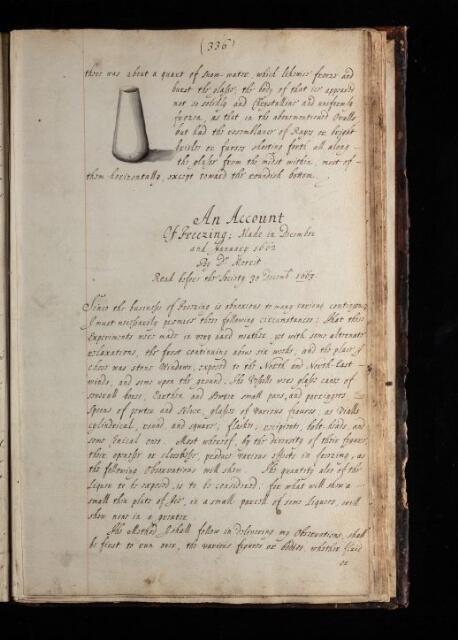 (336)
there was about a quart of snow-water, which likewise froze and
burst the glasse, the body of that ice appeard
not so solidly and Chrystalline and uniformly
frozen, as that in the abovementioned Ovalls
but had the resemblance of Rays or bright
bristles or furzes shooting forth all along
the glasse from the midst within, most of
them horizontally, except toward the roundish bottom.
An Account
Of Freezing; Made in December
and January 1662
By Dr Merret
Read before the Society 30 Decemb. 1663.
Since the business of Freezing is obnoxious to many various contingents
I must necessarily premise these following circumstances: That these
Experiments were made in very hard weather, yet with some alternate
relaxations, the frost continuing above six weeks, and the place I
chose was stone Windows, exposed to the North and North-East
winds, and some upon the ground. The Vessells were glasse canes of
severall bores, Earthen and Brasse small pans, and porringers
Spoons of pewter and Silver, glasses of various figures, as Vialls
cylindrical, round, and square, flaskes, recipients, bolt-heads, and
some conical ones. Most whereof, by the diversity of their figures,
their openesse or closenesse, produce various effects in freezing, as
the following Observations will shew. The quantity also of the
Liquor to be exposed, is to be considered, for what will shew a
small thin plate of Ice, in a small parcell of some Liquors, will
shew none in a greater.
The Method I shall follow in delivering my Observations, shall
be first to run over, the various figures or bodies, whether fluid
or